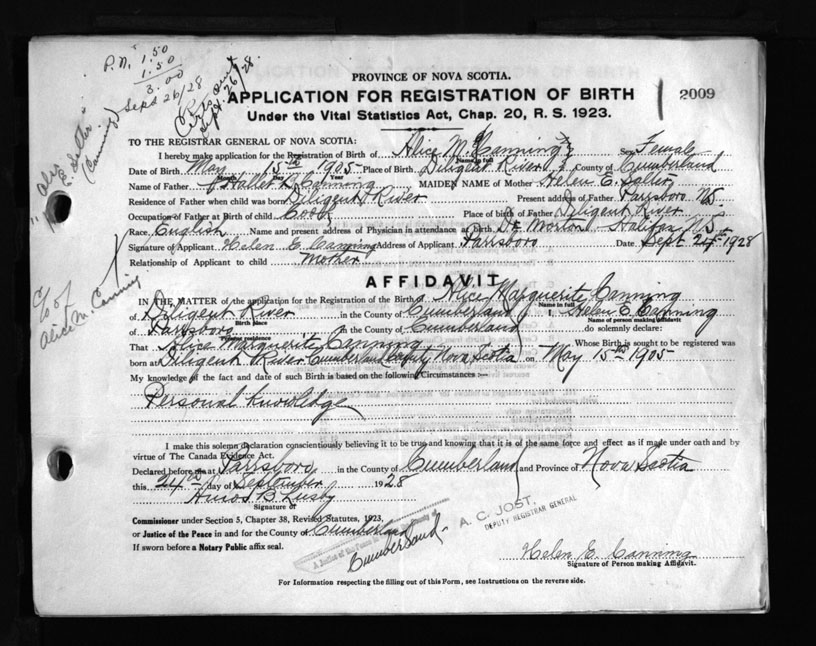 P.N. 1.50
1.50
3.00
Sept 26/28
Sept. 26/28.
PROVINCE OF NOVA SCOTIA.
APPLICATION FOR REGISTRATION OF BIRTH
2009
Under the Vital Statistics Act, Chap. 20, R. S. 1923.
TO THE REGISTRAR GENERAL OF NOVA SCOTIA:
I hereby make application for the Registration of Birth of Alice M. Canning Sex Female
Name in full
Date of Birth May 15th 1905 Place of Birth Diligent River County of Cumberland
Month Day Year
Name of Father Hallet Canning MAIDEN NAME of Mother Helen E.
Residence of Father when child was born Diligent River Present address of Father Parrsboro N.S.
Occupation of Father at Birth of child Cook Place of birth of Father Diligent River
Race English Name and present address of Physician in attendance at birth Dr Morton Halifax N.S.
Signature of Applicant Helen E Canning Address of Applicant Parrsboro Date Sept 24th 1928
Relationship of Applicant to child Mother
(Canning)
c/o of
Alice M. Canning
AFFIDAVIT
IN THE MATTER of the application for the Registration of the Birth of Alice Marguerite Canning
Name in full
of Diligent River in the County of Cumberland I, Helen E. Canning
Birth place Name of person making affidavit
of Parrsboro in the County of Cumberland do solemnly declare:
Present residence
That Alice Marguerite Canning Whose Birth is sought to be registered was
born at Diligent River Cumberland County Nova Scotia on May 15th 1905
My knowledge of the fact and date of such Birth is based on the following Circumstances :—
Personal knowledge
I make this solemn declaration conscientiously believing it to be true and knowing that it is of the same force and effect as if made under oath and by
virtue of The Canada Evidence Act.
Declared before me at Parrsboro in the County of Cumberland and Province of Nova Scotia
this 24th day of September 1928
Amos B Lusby
Signature of
Commissioner under Section 5, Chapter 38, Revised Statutes, 1923,
or Justice of the Peace in and for the County of Cumberland
If sworn before a Notary Public affix seal.
A Justice of the Peace in
Cumberland
A. C. JOST,
DEPUTY REGISTRAR GENERAL
Helen E. Canning
Signature of Person making Affidavit.
For Information respecting the filling out of this Form, see Instructions on the reverse side.